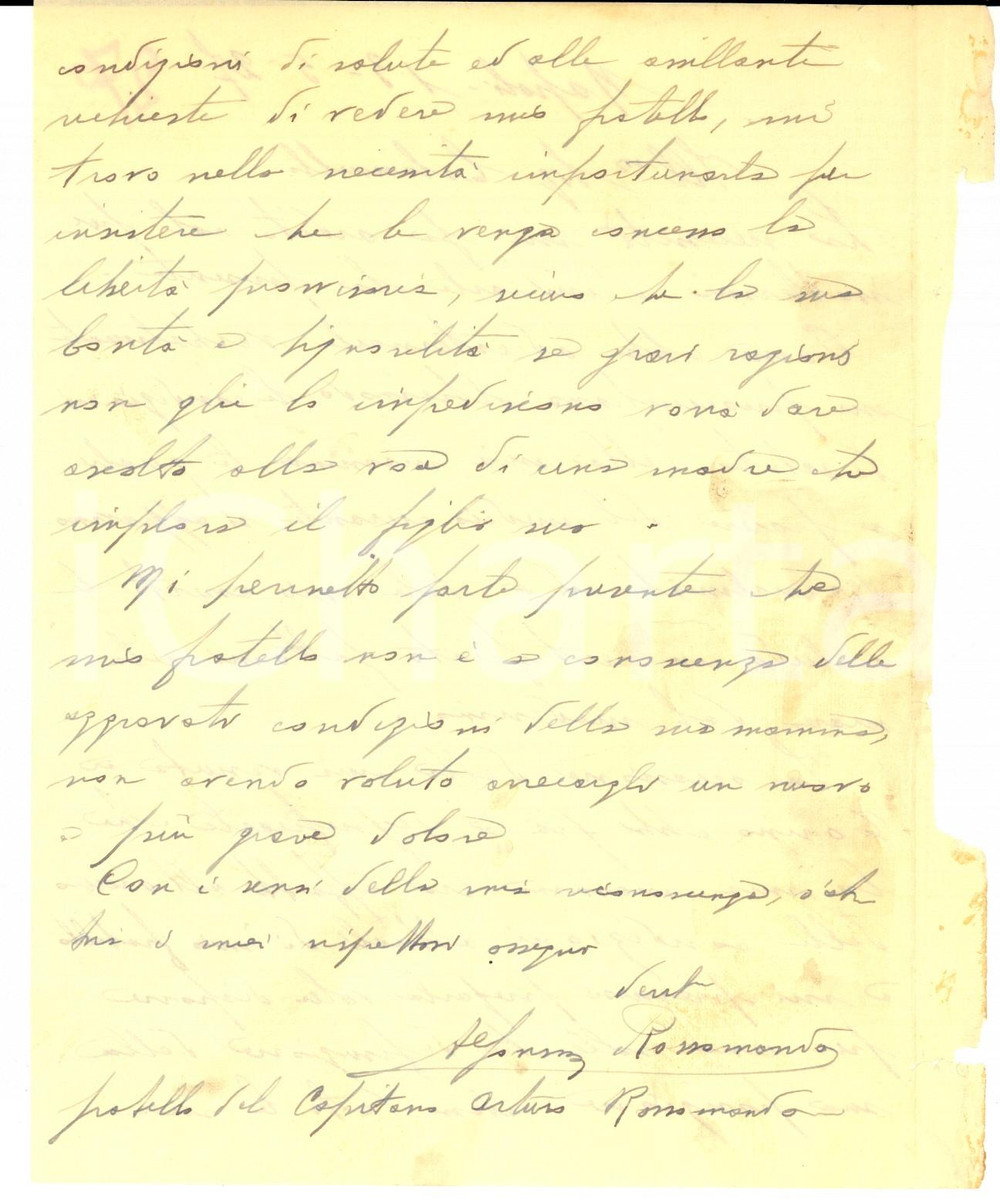 condizioni di salute ed alle assillante
richieste di vedere mio fratello, mi
trovo nella necessità importunarla per
insistere che le venga concessa la
libertà provvisoria, sicuro che la sua
bontà e signorilità se gravi ragioni
non glie lo impediscono vorrà dare
ascolto alla voce di una madre che
implora il figlio suo.
Mi permetto farle presente che
mio fratello non è a conoscenza delle
aggravate condizioni della sua mamma,
non avendo voluto arrecargli un nuovo
e più grave dolore
Con i sensi della mia riconoscenza,
i miei rispettosi ossequi
Alfonso Rossomando
fratello del Capitano Arturo Rossomando
iCharta